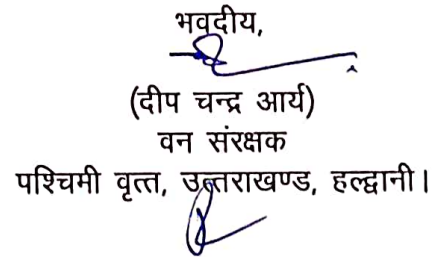 भवदीय,
(दीप चन्द्र आर्य)
वन संरक्षक
पश्चिमी वृत्त, उत्तराखण्ड, हल्द्वानी।